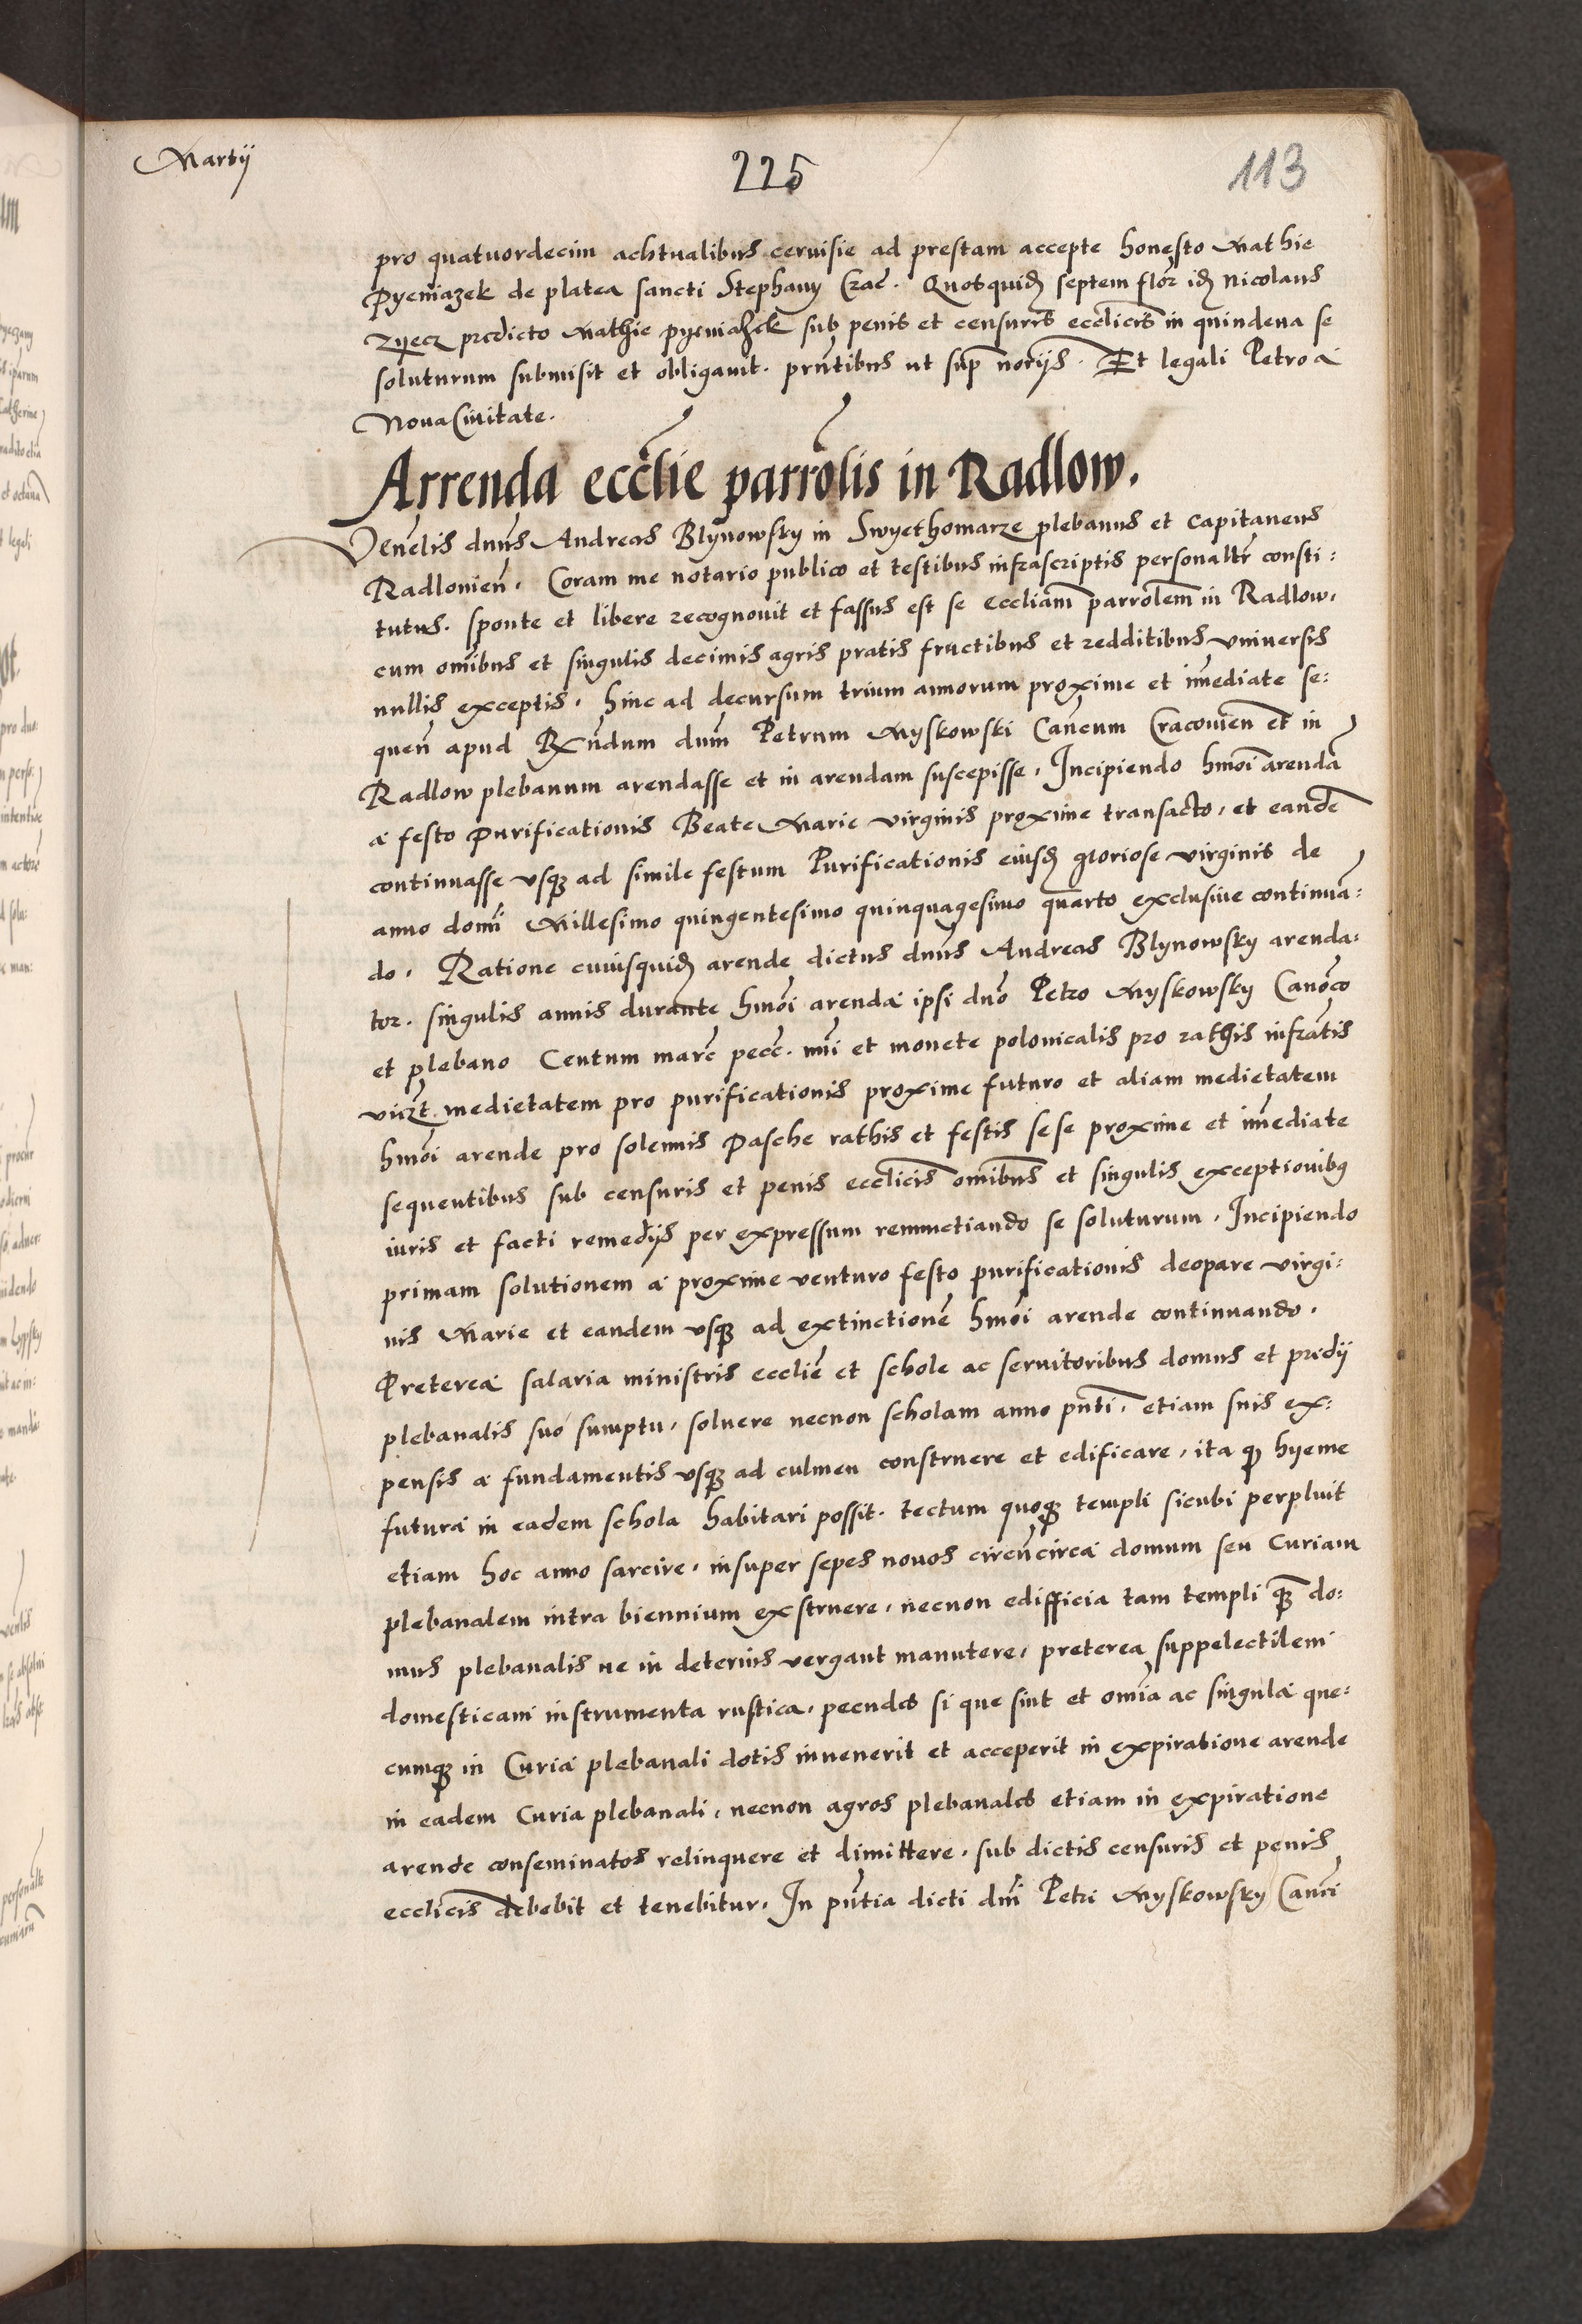 Martij
225
113
pro quatuordecim achtualibus ceruisie ad prestam accepte honesto Mathie
Pyeniazek de platea sancti Stephany Crac̄. Quosquid septem flor̄ id Nicolaus
predicto Mathie pyeniazek sub penis et censuris ecclīcis in quindena se
soluturum submisit et obligauit. prn̄tibus ut sup̄ norijs. Et legali Petro a
Noua Ciuitate.
Arrenda ecclīe parrōlis in Radlow.
Venēlis dnūs Andreas Blynowsky in Swyethomarze plebanus et Capitaneus
Radlouien̄. Coram me notario publico et testibus infrascriptis personalr̄ consti:
tutus. sponte et libere recognouit et fassus est se eccliam̄ parrolem̄ in Radlow,
cum omībus et singulis decimis agris pratis fructibus et redditibus vniuersis
nullis exceptis, hinc ad decursum trium annorum proxime et imediate se:
quen̄ apud Rx̄ndum dum̄ Petrum Myskowski Canc̄um Cracouien̄ et in
Radlow plebanum arendasse et in arendam suscepisse, Incipiendo hmōi arendā
a festo Purificationis Beate Marie virginis proxime transacto, et eandē
continuasse vsq; ad simile festum Purificationis eiusd gloriose virginis de
anno domī Millesimo quingentesimo quinquagesimo quarto exclusiue continuā:
do. Ratione cuiusquid arende dictus dnūs Andreas Blynowsky arenda:
tor. singulis annis durante hmōi arenda ipsi dno Petro Myskowsky Canōco
et plebano Centum marc̄ pecc̄. nr̄i et monete polonicalis pro rathis infrātis
vizt. medietatem pro purificationis proxime futuro et aliam medietatem
hmōi arende pro solennis Pasche rathis et festis sese proxime et im̄ediate
sequentibus sub censuris et penis ecclīcis omībus et singulis exceptionibq
iuris et facti remedijs per expressum renunctiando se soluturum, Incipiendo
primam solutionem a proxime venturo festo purificationis deopare virgi:
nis Marie et eandem vsq; ad extinctionē hmōi arende continuando.
Preterea salaria ministris ecclīe et schole ac seruitoribus domus et pridij
plebanalis suo sumptu, soluere necnon scholam anno pn̄ti, etiam suis ex:
pensis a fundamentis vsq; ad culmen construere et edificare, ita q; hyeme
futura in eadem schola habitari possit. tectum quoq; templi sicubi perpluit
etiam hoc anno sarcire, insuper sepes nouos circūcirca domum seu Curiam
plebanalem intra biennium exstruere, necnon edifficia tam templi q̄; do:
mus plebanalis ne in deterius vergant manutere, preterea suppelectilem
domesticam instrumenta rustica, pecudes si que sint et omīa ac singula que:
cumq; in Curia plebanali dotis inuenerit et acceperit in expiratione arende
in eadem Curia plebanali, necnon agros plebanales etiam in expiratione
arende conseminatos relinquere et dimittere, sub dictis censuris et penis
ecclīcis debebit et tenebitur, In pn̄tia dicti dnī Petri Myskowsky Canc̄i